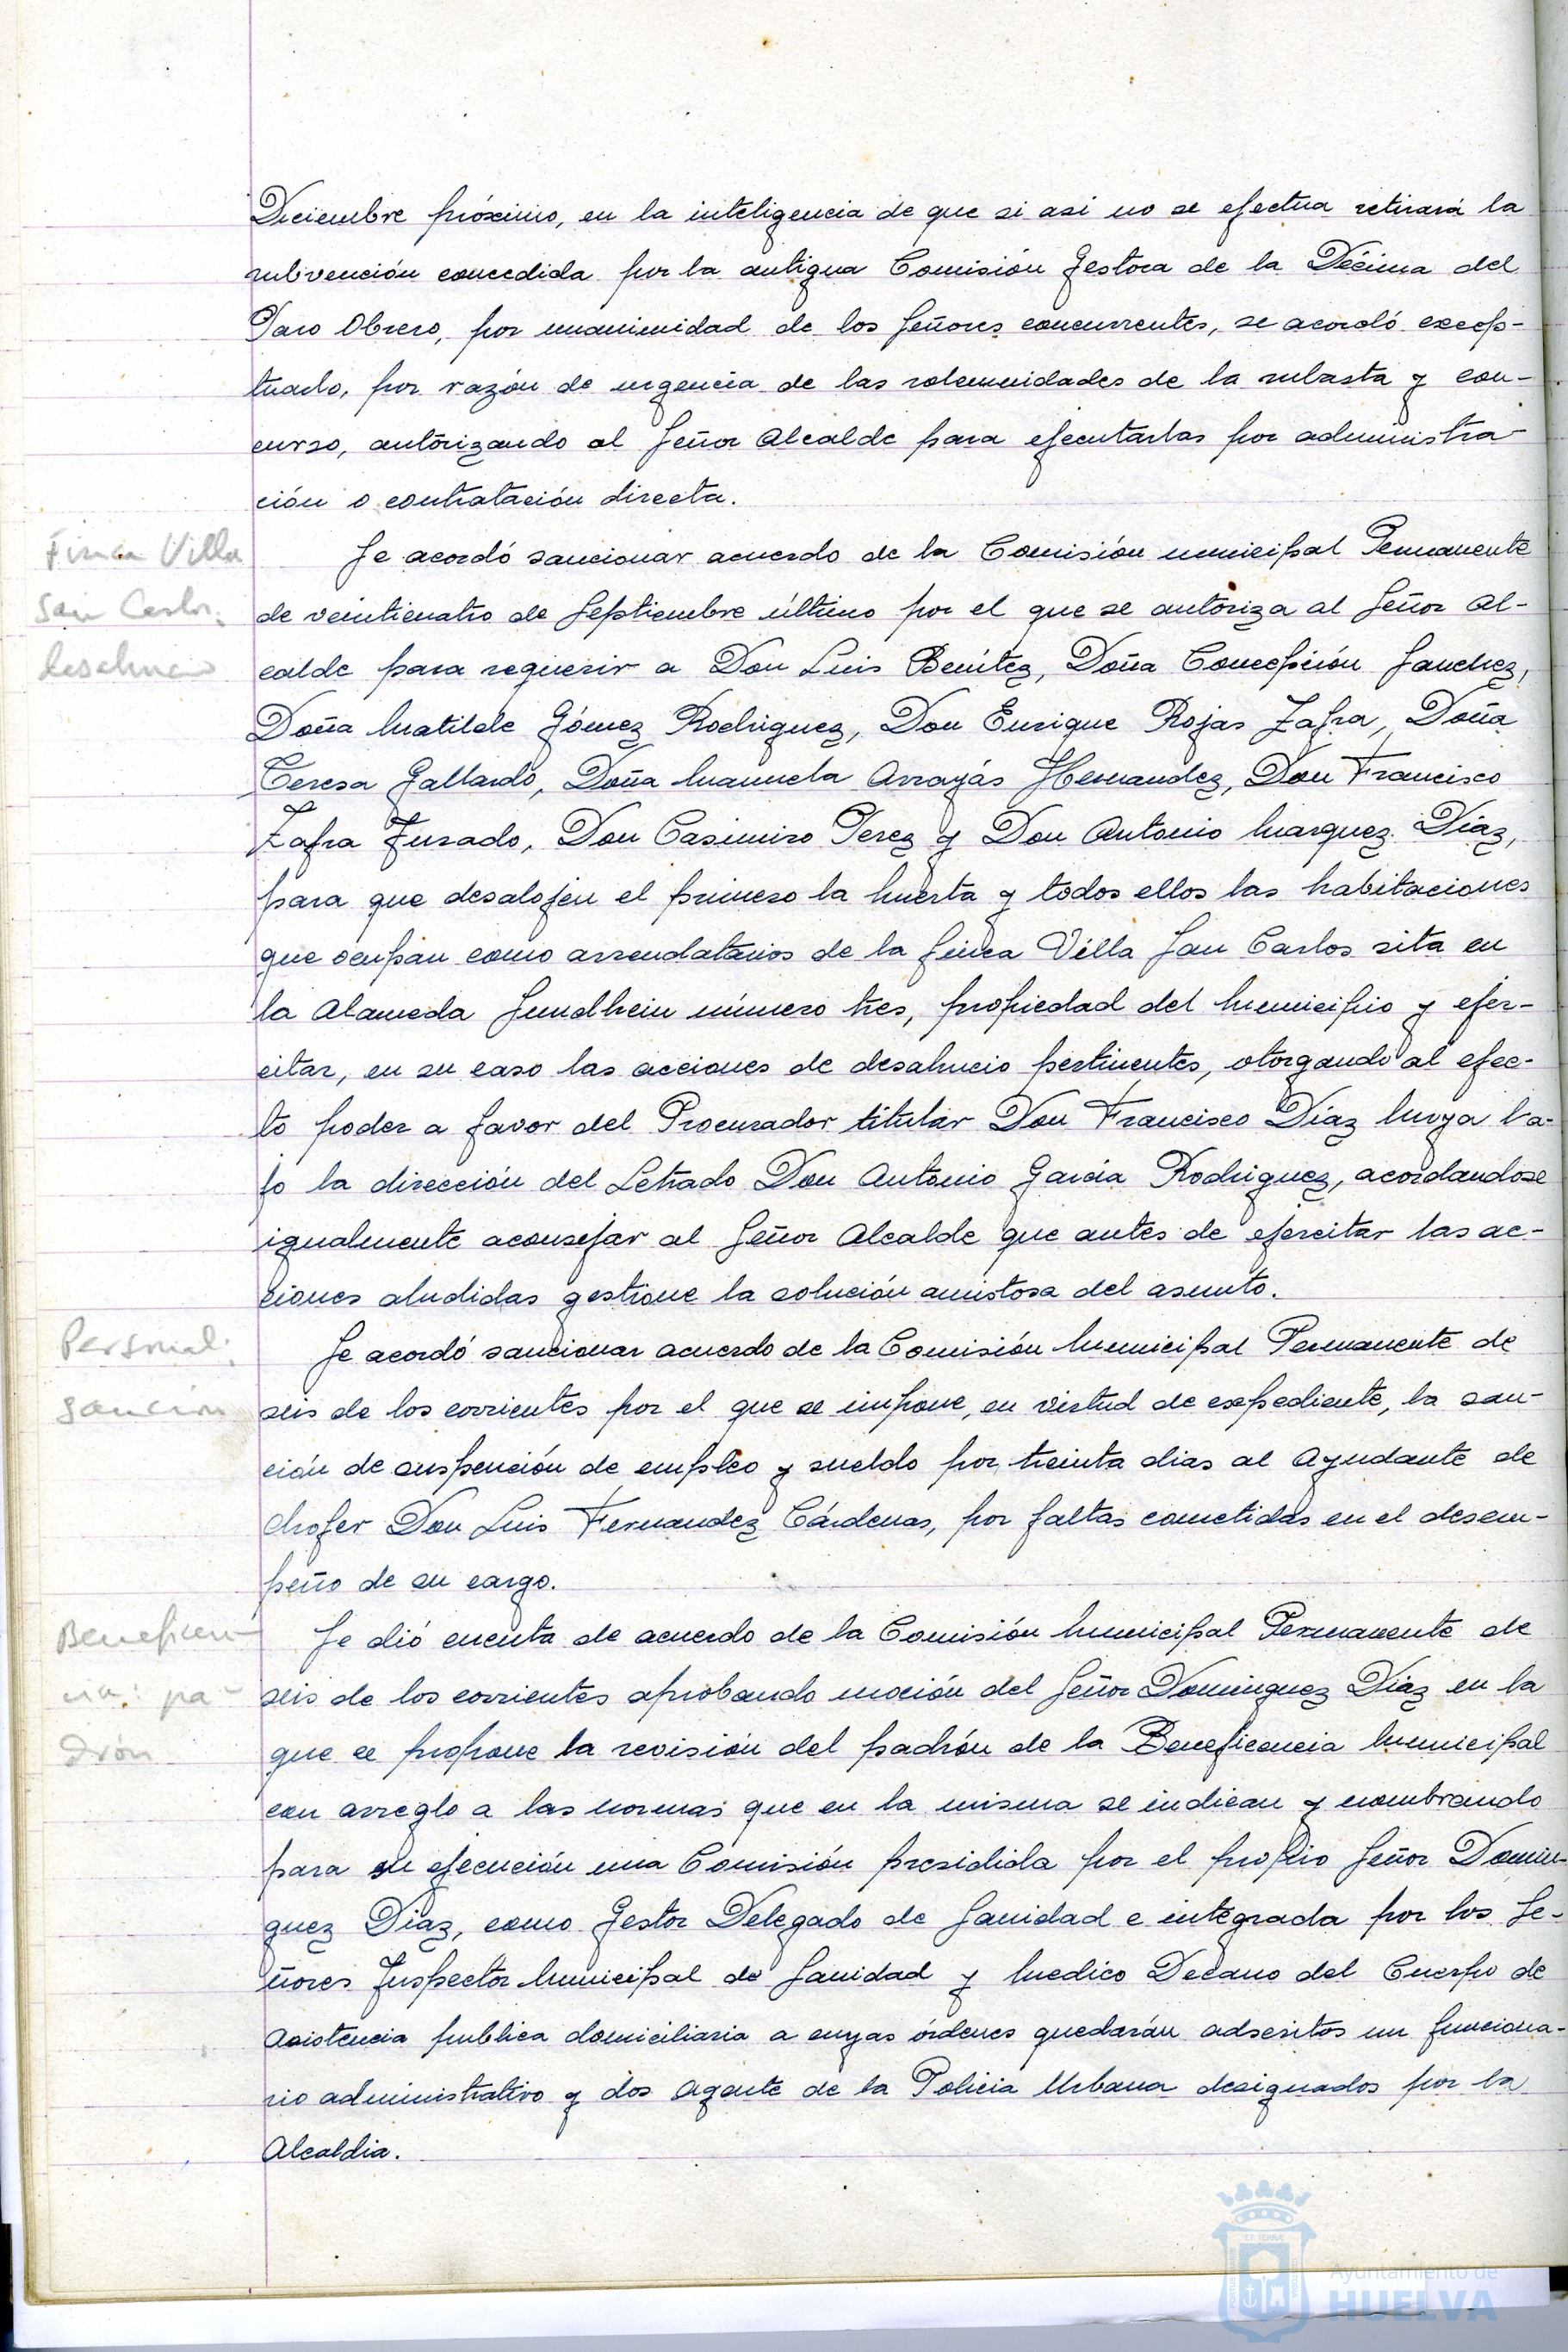 Diciembre próximo, en la inteligencia de que si asi no se efectua retirará la
subvención concedida por la antigua Comisión Gestora de la Décima del
Paro Obrero, por unanimidad de los Señores concurrentes, se acordó excep-
tuarlo, por razón de urgencia de las solemnidades de la subasta y con-
curso, autorizando al Señor Alcalde para ejecutarlas por administra-
ción o contratación directa.
Finca Villa
San Carlos:
desahucio
Se acordó sancionar acuerdo de la Comisión municipal Permanente
de veinticuatro de Septiembre último por el que se autoriza al Señor Al-
calde para requerir a Don Luis Benítez, Doña Concepción Sanchez,
Doña Matilde Gómez Rodriguez, Don Enrique Rojas Zafra, Doña
Teresa Gallardo, Doña Manuela Arrayás Hernandez, Don Francisco
Zafra Jurado, Don Casimiro Perez y Don Antonio Marquez Díaz,
para que desalojen el primero la huerta y todos ellos las habitaciones
que ocupan como arrendatarios de la finca Villa San Carlos sita en
la Alameda Sundhein número tres, propiedad del Municipio y ejer-
citar, en su caso las acciones de desahucio pertinentes, otorgando al efec-
to poder a favor del Procurador titular Don Francisco Díaz Moya ba-
jo la dirección del Letrado Don Antonio García Rodriguez, acordandose
igualmente aconsejar al Señor Alcalde que antes de ejercitar las ac-
ciones aludidas gestione la solución amistosa del asunto.
Personal:
sanción
Se acordó sancionar acuerdo de la Comisión Municipal Permanente de
seis de los corrientes por el que se impone, en virtud de expediente, la san-
ción de suspención de empleo y sueldo por treinta dias al Ayudante de
chofer Don Luis Fernandez Cárdenas, por faltas cometidas en el desem-
peño de su cargo.
Beneficen-
cia: pa-
drón
Se dió cuenta de acuerdo de la Comisión Municipal Permanente de
seis de los corrientes aprobando moción del Señor Dominguez Diaz en la
que se propone la revisión del padrón de la Beneficencia Municipal
con arreglo a las normas que en la misma se indican y nombrando
para su ejecución una Comisión presidida por el propio Señor Domin-
guez Diaz, como Gestor Delegado de Sanidad e integrada por los Se-
ñores Inspector Municipal de Sanidad y Medico Decano del Cuerpo de
Asistencia publica domiciliaria a cuyas órdenes quedarán adscritos un funciona-
rio administrativo y dos Agente de la Policia Urbana designados por la
Alcaldia.
Ayuntamiento de
HUELVA